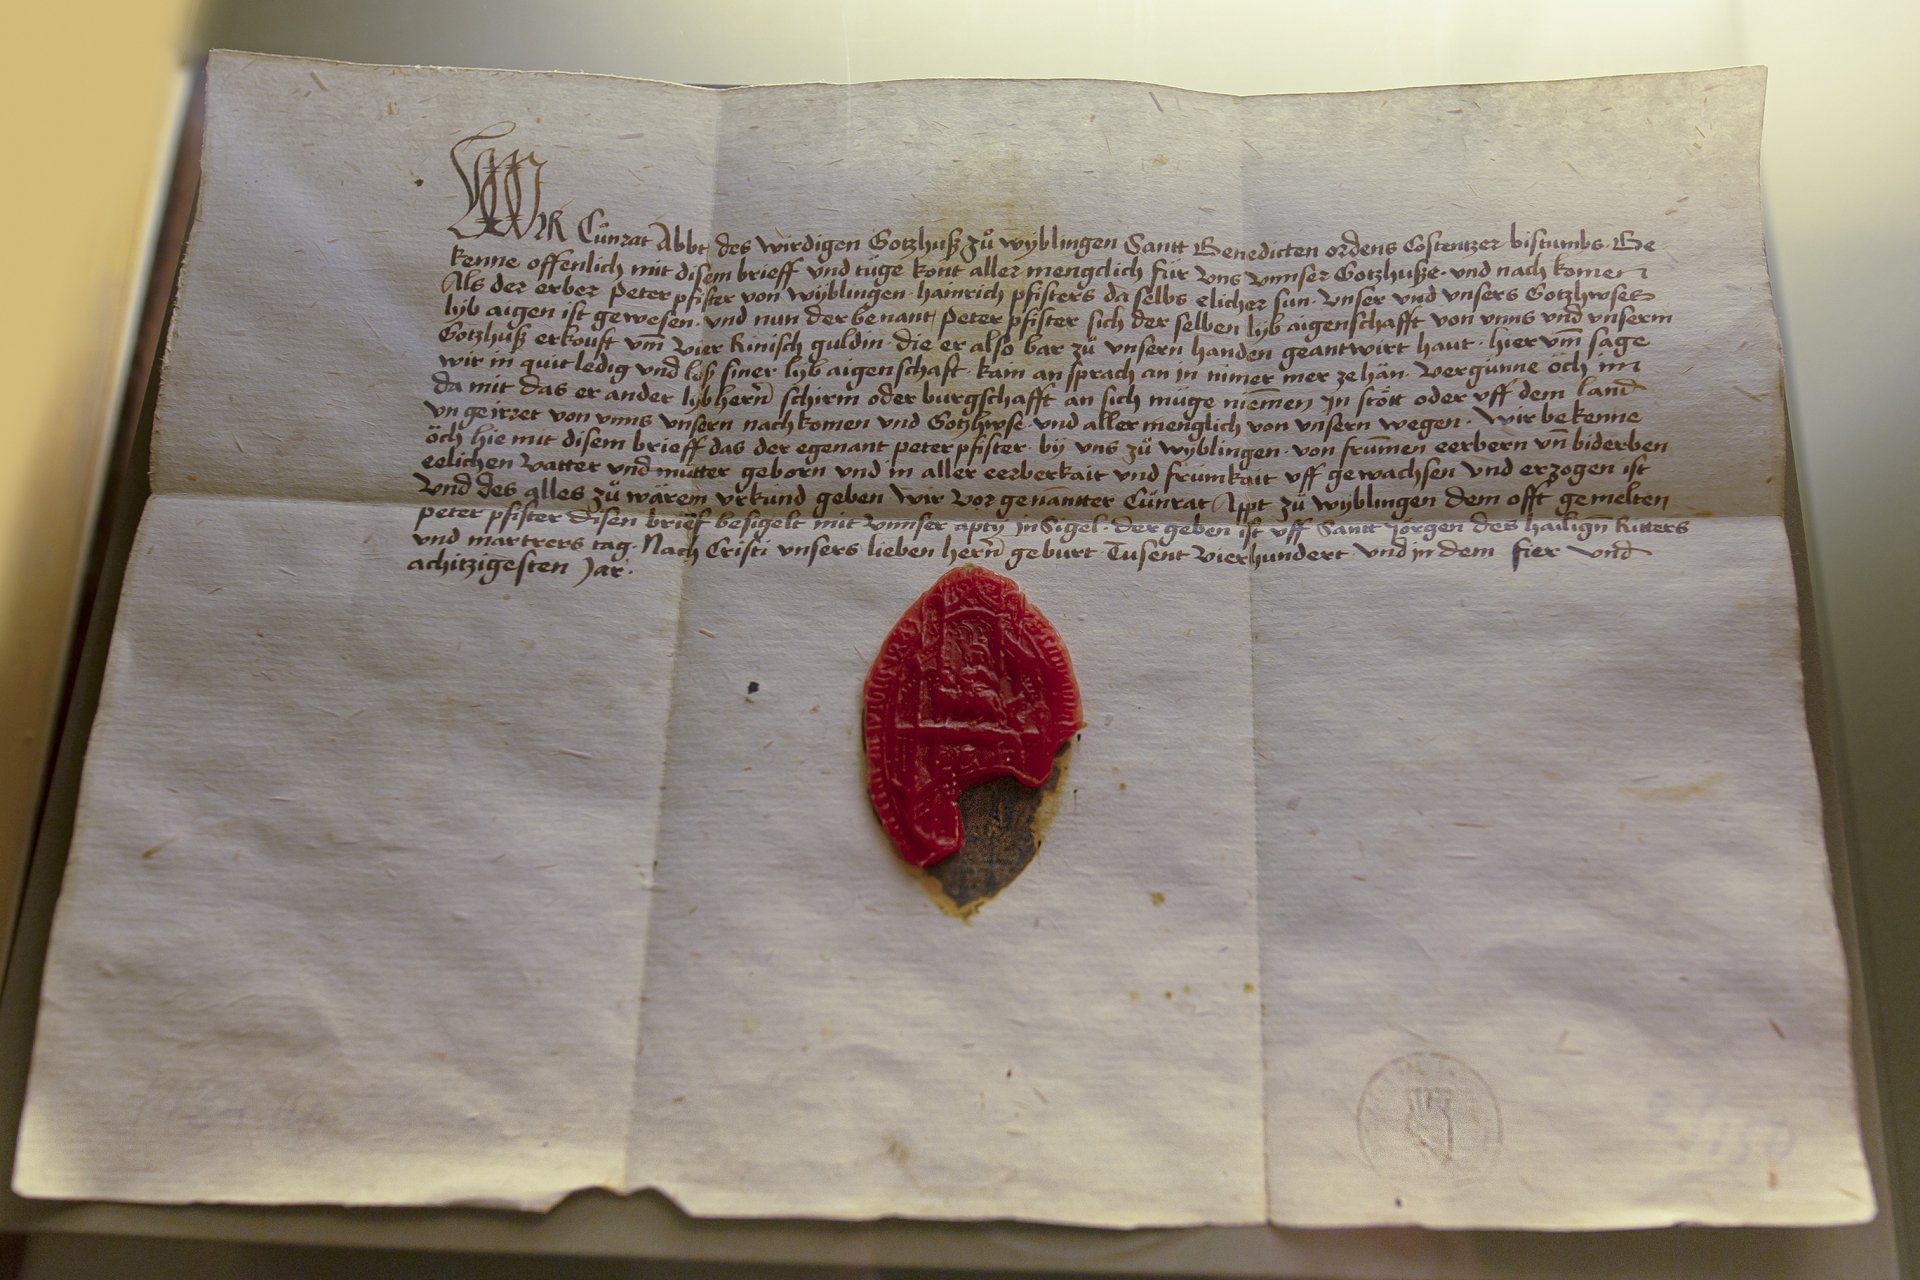 WIR Cůnrat Abbt des wirdigen Gotzhuß zů wyblingen Santt Benedicten ordens Costentzer bistumbs. Be-
kenne offenlich mit disem brieff vnd tüge kont aller mengclich für vns vnnser Gotzhuße. vnd nach komen
Als der erber Peter pfister von wyblingen. hainrich pfisters da selbs elicher sun. vnser vnd vnsers Gotzhwses
lyb aigen ist gewesen. vnd nun der benant Peter pfister sich der selben lyb aigenschafft von vnns vnd vnserm
Gotzhuß erkouft vm̄ vier Rinisch guldin. die er also bar zů vnsern handen geantwirt haut. hier vm̄ sage
wir in quit ledig vnd loß siner lyb aigenschaft. kam an sprach an in nimer mer ze hän. Vergünne öch im
da mit das er ander lyb hern̄ schirm oder burgschafft an sich müge niem̄en in stött oder vff dem land
vn geirret von vnns vnsern nachkomen vnd Gotzhwse. vnd aller menglich von vnsern wegen. Wir bekenne
öch hie mit disem brieff das der egenant peter pfister. by vns zů wyblingen. von frum̄en eerbern vn biderben
eelichen vatter vnd můtter geborn vnd in aller eerberkait vnd frümkait vff gewachsen vnd erzogen ist
Vnd des alles zů wärem vrkund geben wir vorgenantter Cůnrat Appt zů wyblingen dem offt gemelten
peter pfister disen brieff besigelt mit vnnser apty in Sigel. der geben ist vff Santt Jörgen des hailign̄ Ritters
vnd martrers tag. Nach Cristi vnsers lieben hern̄ geburt Tusent vierhundert vnd in dem fier vnd
achtzigesten Jar.